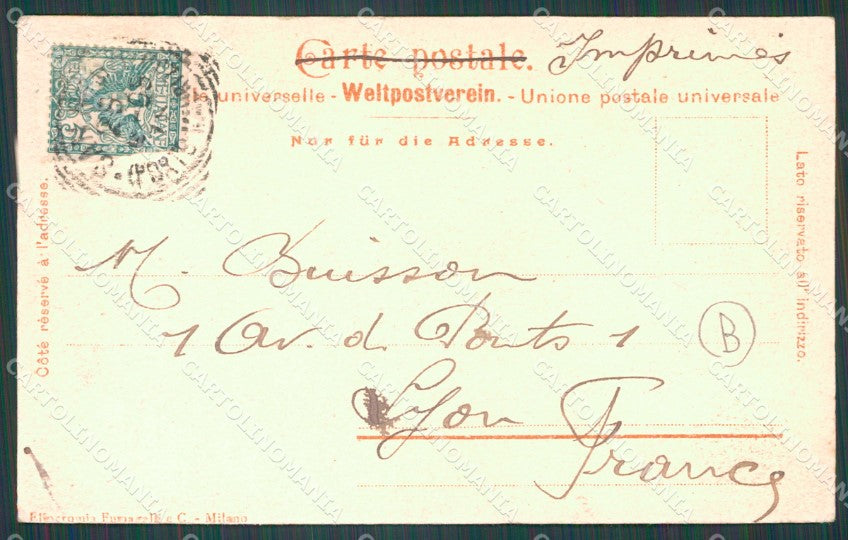 Carte postale. Imprimés
universelle - Weltpostverein. - Unione postale universale
Nur für die Adresse.
Côté réservé à l'adresse.
Lato riservato all' indirizzo.
M. Buisson
1 Av. d. Ponts 1
B
Lyon
France
Eliocromia Fumagalli e C. - Milano
CARTOLINOMANIA